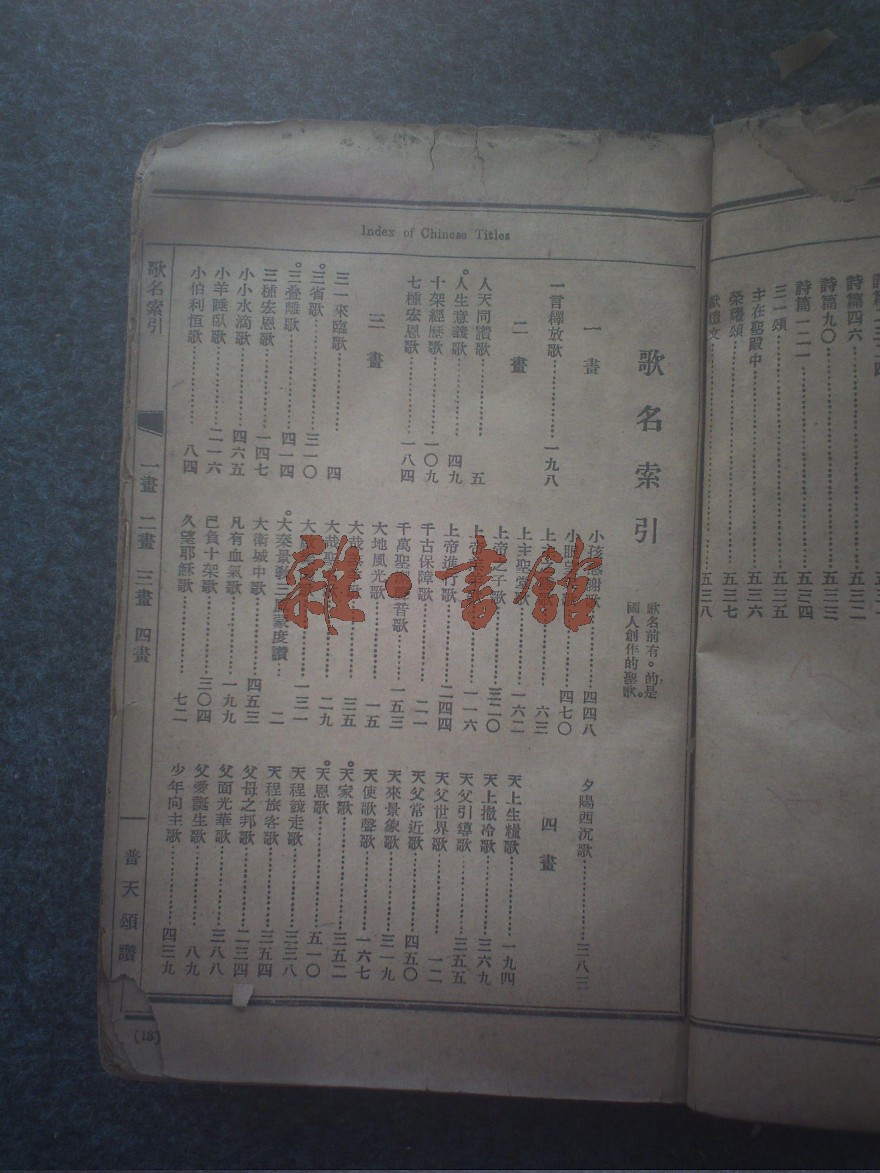 Index of Chinese Titles
歌名索引
歌名前有。的是
國人創作的聖歌。
一畫
一言釋放歌 一九八
二畫
人天同讚歌 五
。人生意義歌 四九
十架經歷歌 一〇九
七種宏恩歌 一八四
三畫
三一來臨歌 四
。三省歌 三一〇
。三叠離歌 四一四
三種宏恩歌 一四七
小小水滴歌 四六五
小羊睡臥歌 二一六
小伯利恒歌 八四
小孩 謝歌 四四八
小 四七〇
上 六三
上主聖 歌 一六二
上帝 子歌 三二〇
上帝 一一六
上帝進行歌 二四四
千古保障歌 二一
千萬聖 昔歌 一五三
大地風光歌 一五
大哉 歌 三五
大哉聖 二九
大 一三一
。大秦景教三 蒙度讚 二
大衛城中歌 四五三
凡有血氣歌 一九九
已負十架歌 三〇四
久望耶穌歌 七二
夕陽西沉歌 三八三
四畫
天上生糧歌 一九四
天上撒冷歌 三六九
天父引導歌 三五五
天父世界歌 一二
天父常近歌 四五〇
天來景象歌 三一九
天使歌聲歌 一六七
。天家歌 三五二
。天恩歌 五一〇
天程競走歌 三三八
天程旅客歌 三五四
父母之邦歌 二三四
父面光華歌 三八八
父愛誕生歌 八九
少年向主歌 四三九
歌名索引
一畫 二畫 三畫 四畫
普天頌讚
(13)
詩篇四六 五三二
詩篇九〇 五三三
詩篇一二一 五三四
三一頌 五三五
主在聖殿中 五三六
榮耀頌 五三七
文 五三八
雜·書館